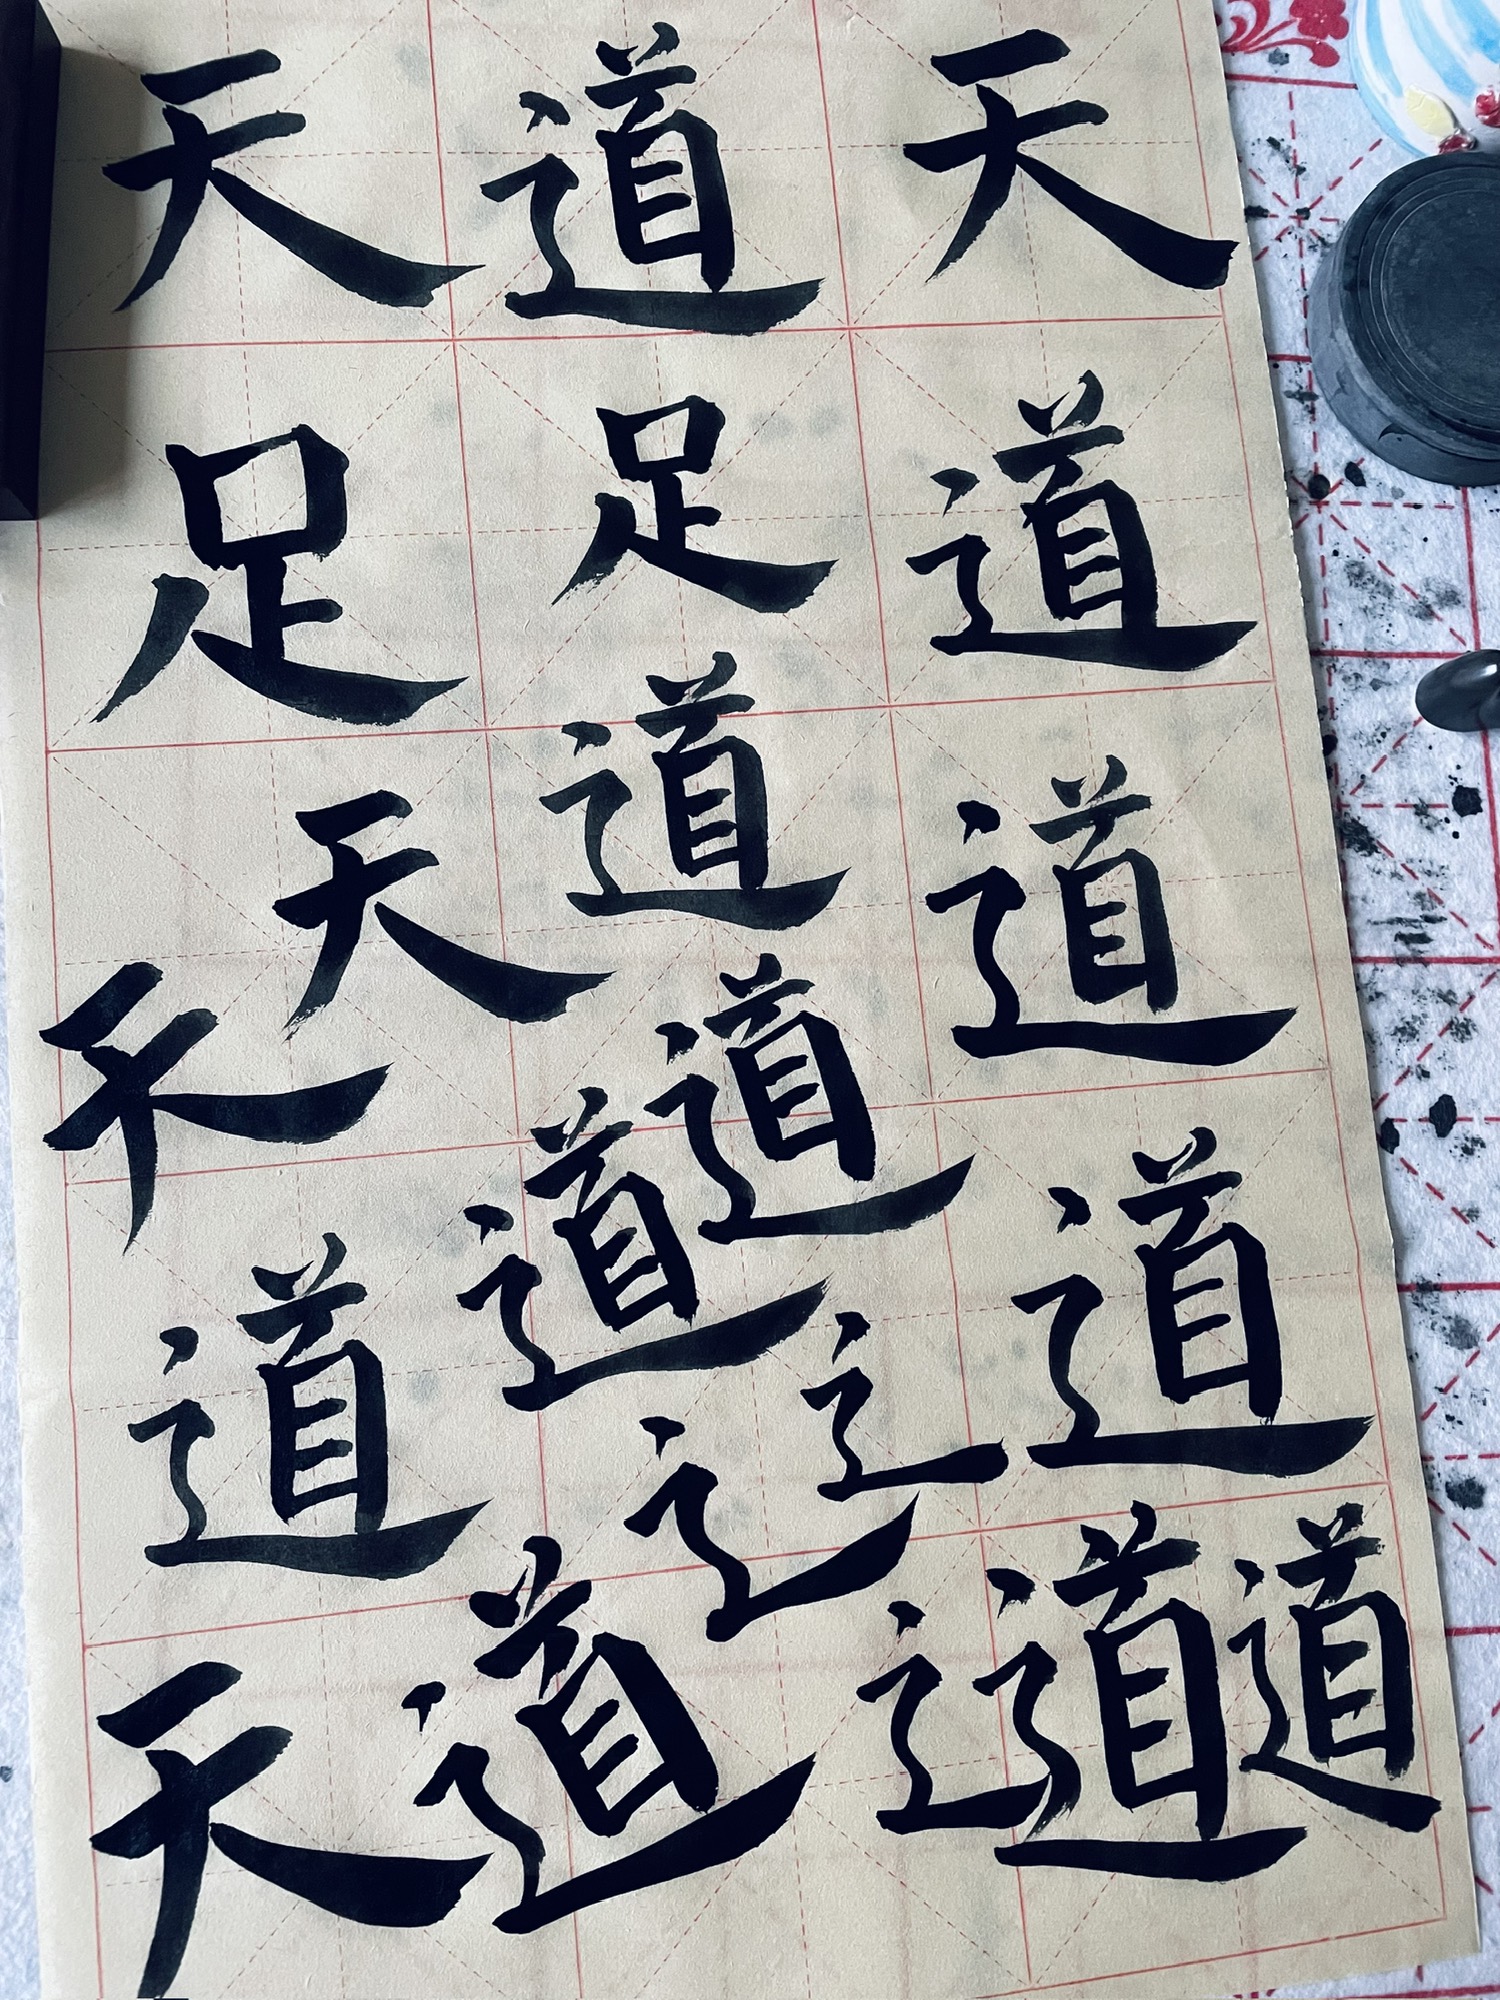 天道道道道道
道足道道道辶辶辶
天足天天道天道